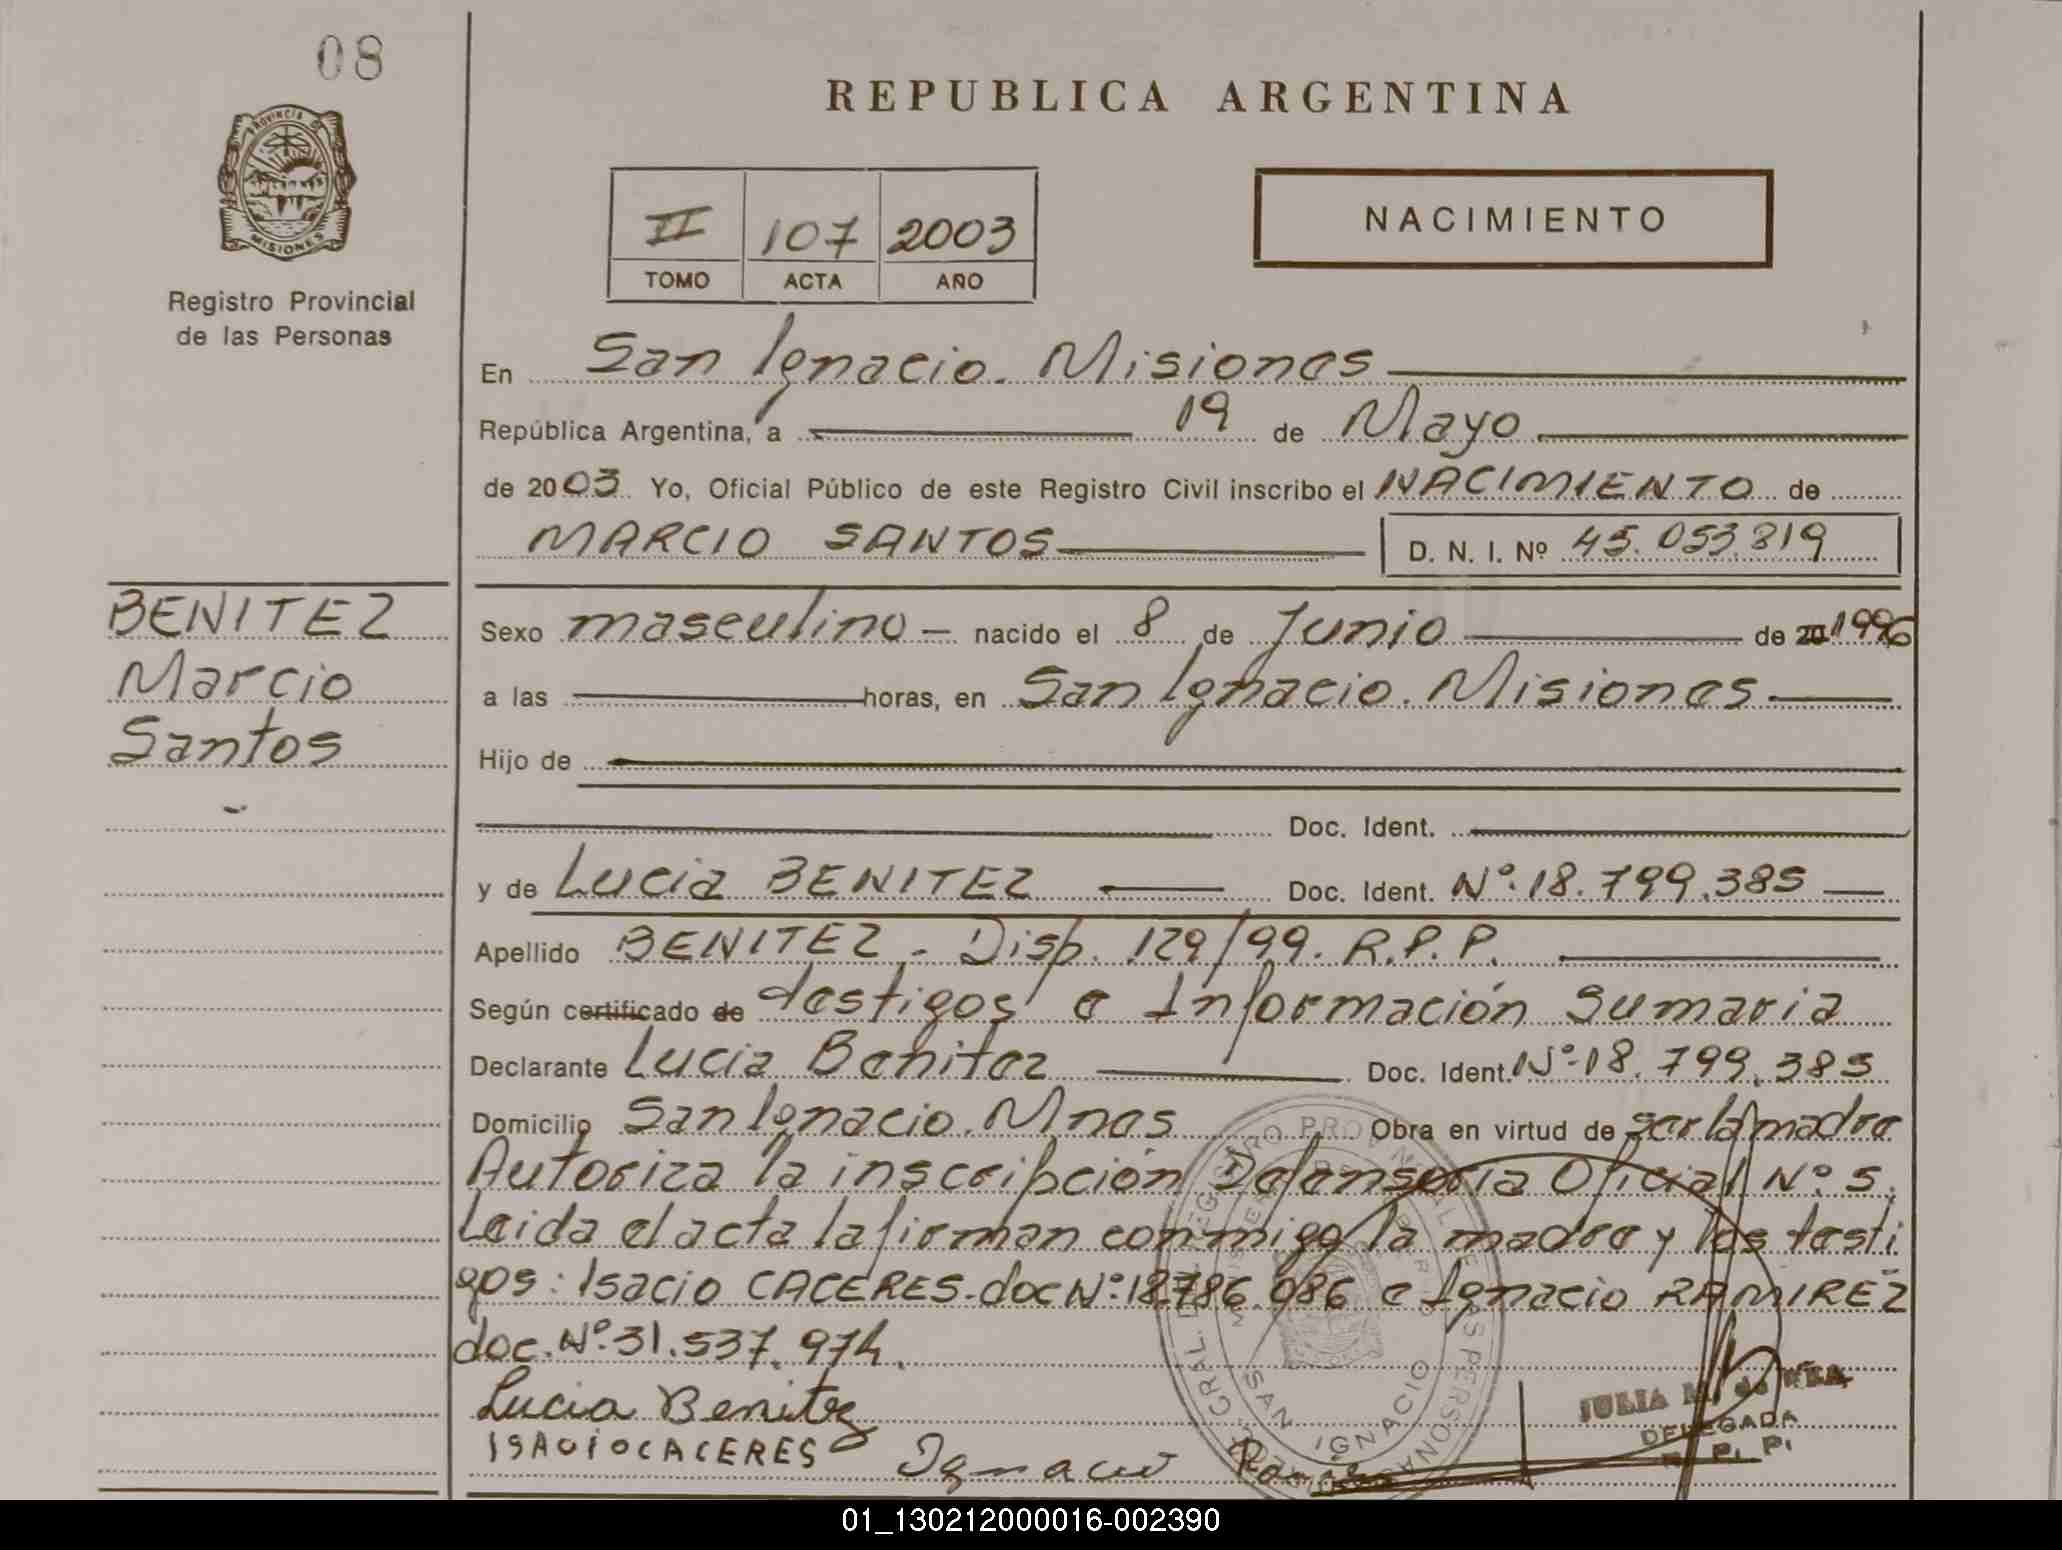 08
REPUBLICA ARGENTINA
PROVINCIA DE
MISIONES
Registro Provincial
de las Personas
II 107 2003
TOMO ACTA AÑO
NACIMIENTO
En San Ignacio. Misiones
República Argentina, a 19 de Mayo
de 2003. Yo, Oficial Público de este Registro Civil inscribo el NACIMIENTO de
MARCIO SANTOS D. N. I. Nº 45.053.819
BENITEZ
Marcio
Santos
Sexo masculino – nacido el 8 de Junio de 20 1996
a las horas, en San Ignacio. Misiones
Hijo de
Doc. Ident.
y de Lucia BENITEZ Doc. Ident. Nº.18.799.385
Apellido BENITEZ - Disp. 129/99. R.P.P.
Según certificado de testigos e Información Sumaria
Declarante Lucia Benitez Doc. Ident. Nº.18.799.385
Domicilio San Ignacio. Mnes Obra en virtud de ser la madre
Autoriza la inscripción Defensoria Oficial Nº 5.
Leida el acta la firman conmigo la madre y los testi
gos: Isacio CACERES. doc Nº:18.786.086 e Ignacio RAMIREZ
doc. Nº.31.537.974.
Lucia Benitez
ISACIO CACERES Ignacio
SAN IGNACIO
JULIA
DELEGADA
R. P. P.
01_130212000016-002390